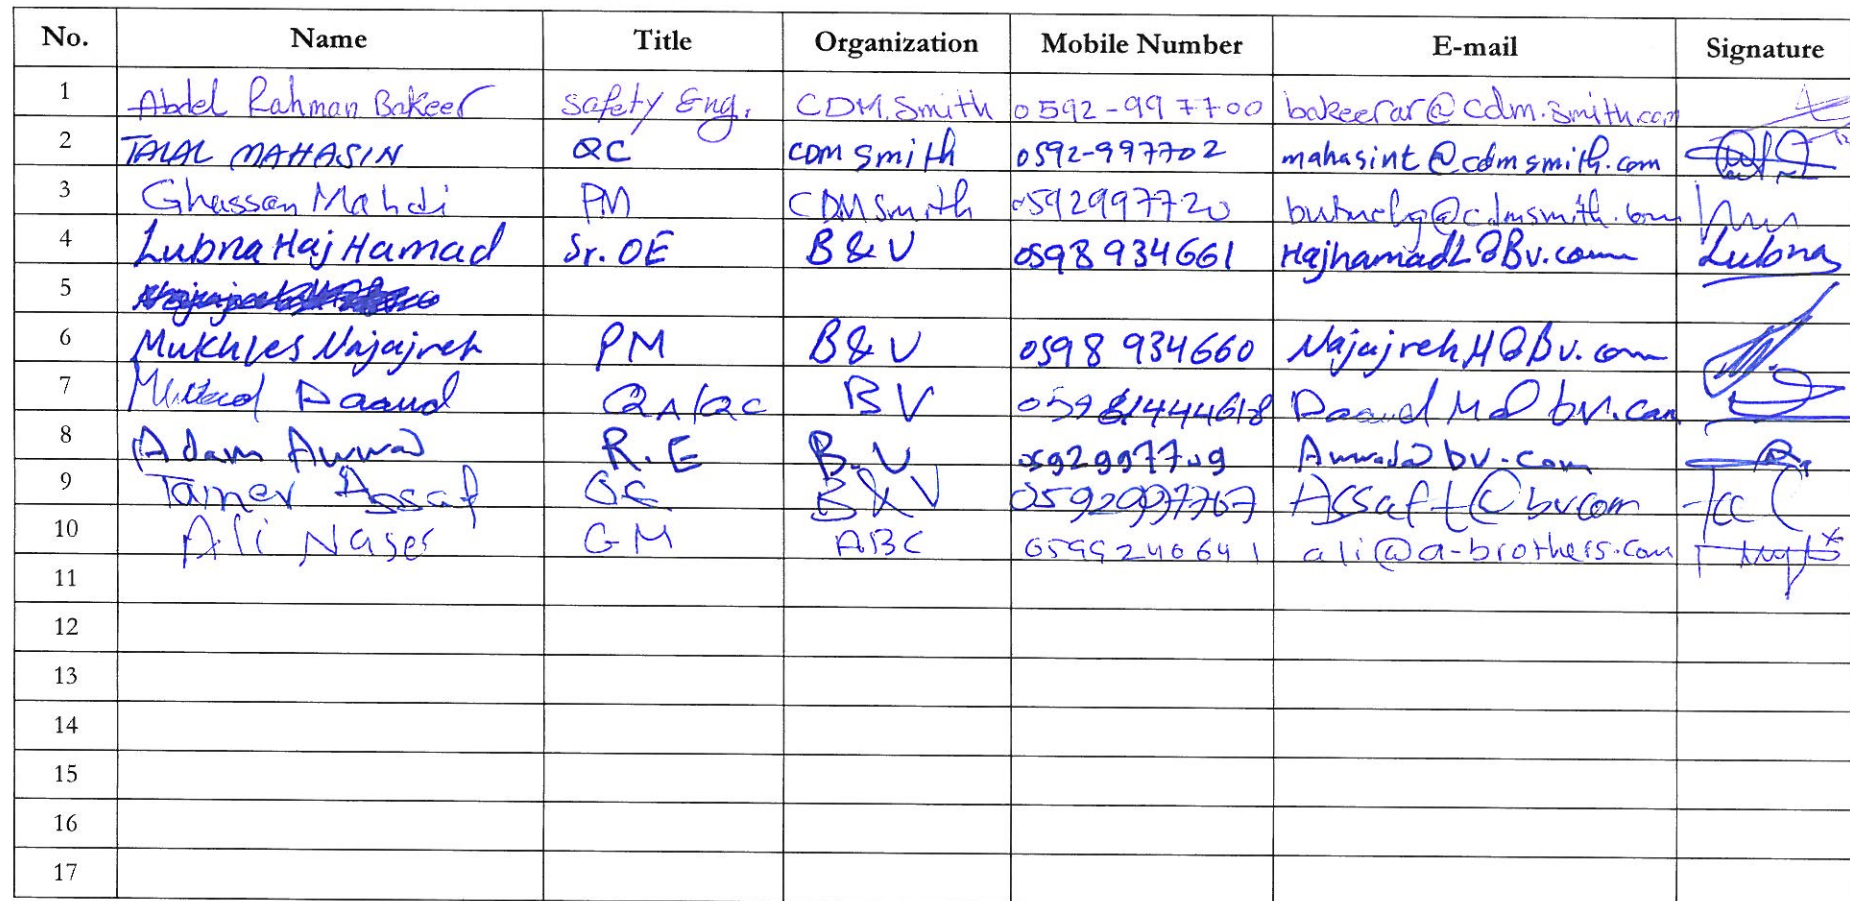 No. Name Title Organization Mobile Number E-mail Signature
1 Abdel Rahman Bakeer Safety Eng. CDM.Smith 0592-997700 bakeerar@cdm.smith.com
2 TALAL MAHASIN QC CDM Smith 0592-997702 mahasint@cdmsmith.com
3 Ghassan Mahdi PM CDM Smith 0592997720
4 Lubna Haj Hamad Sr. OE B&V 0598 934661 HajhamadL@Bv.com Lubna
5
6 Mukhles Najajreh PM B&V 0598 934660 NajajrehM@Bv.com
7 Daaud QA/QC BV DaaudM@bv.com
8 Adam Awwad R.E B.V 0592997709 Awwada@bv.com
9 Tamer Assaf B&V 0592997767 Assaft@bv.com
10 Ali Naser GM ABC 0599240641 ali@a-brothers.com
11
12
13
14
15
16
17